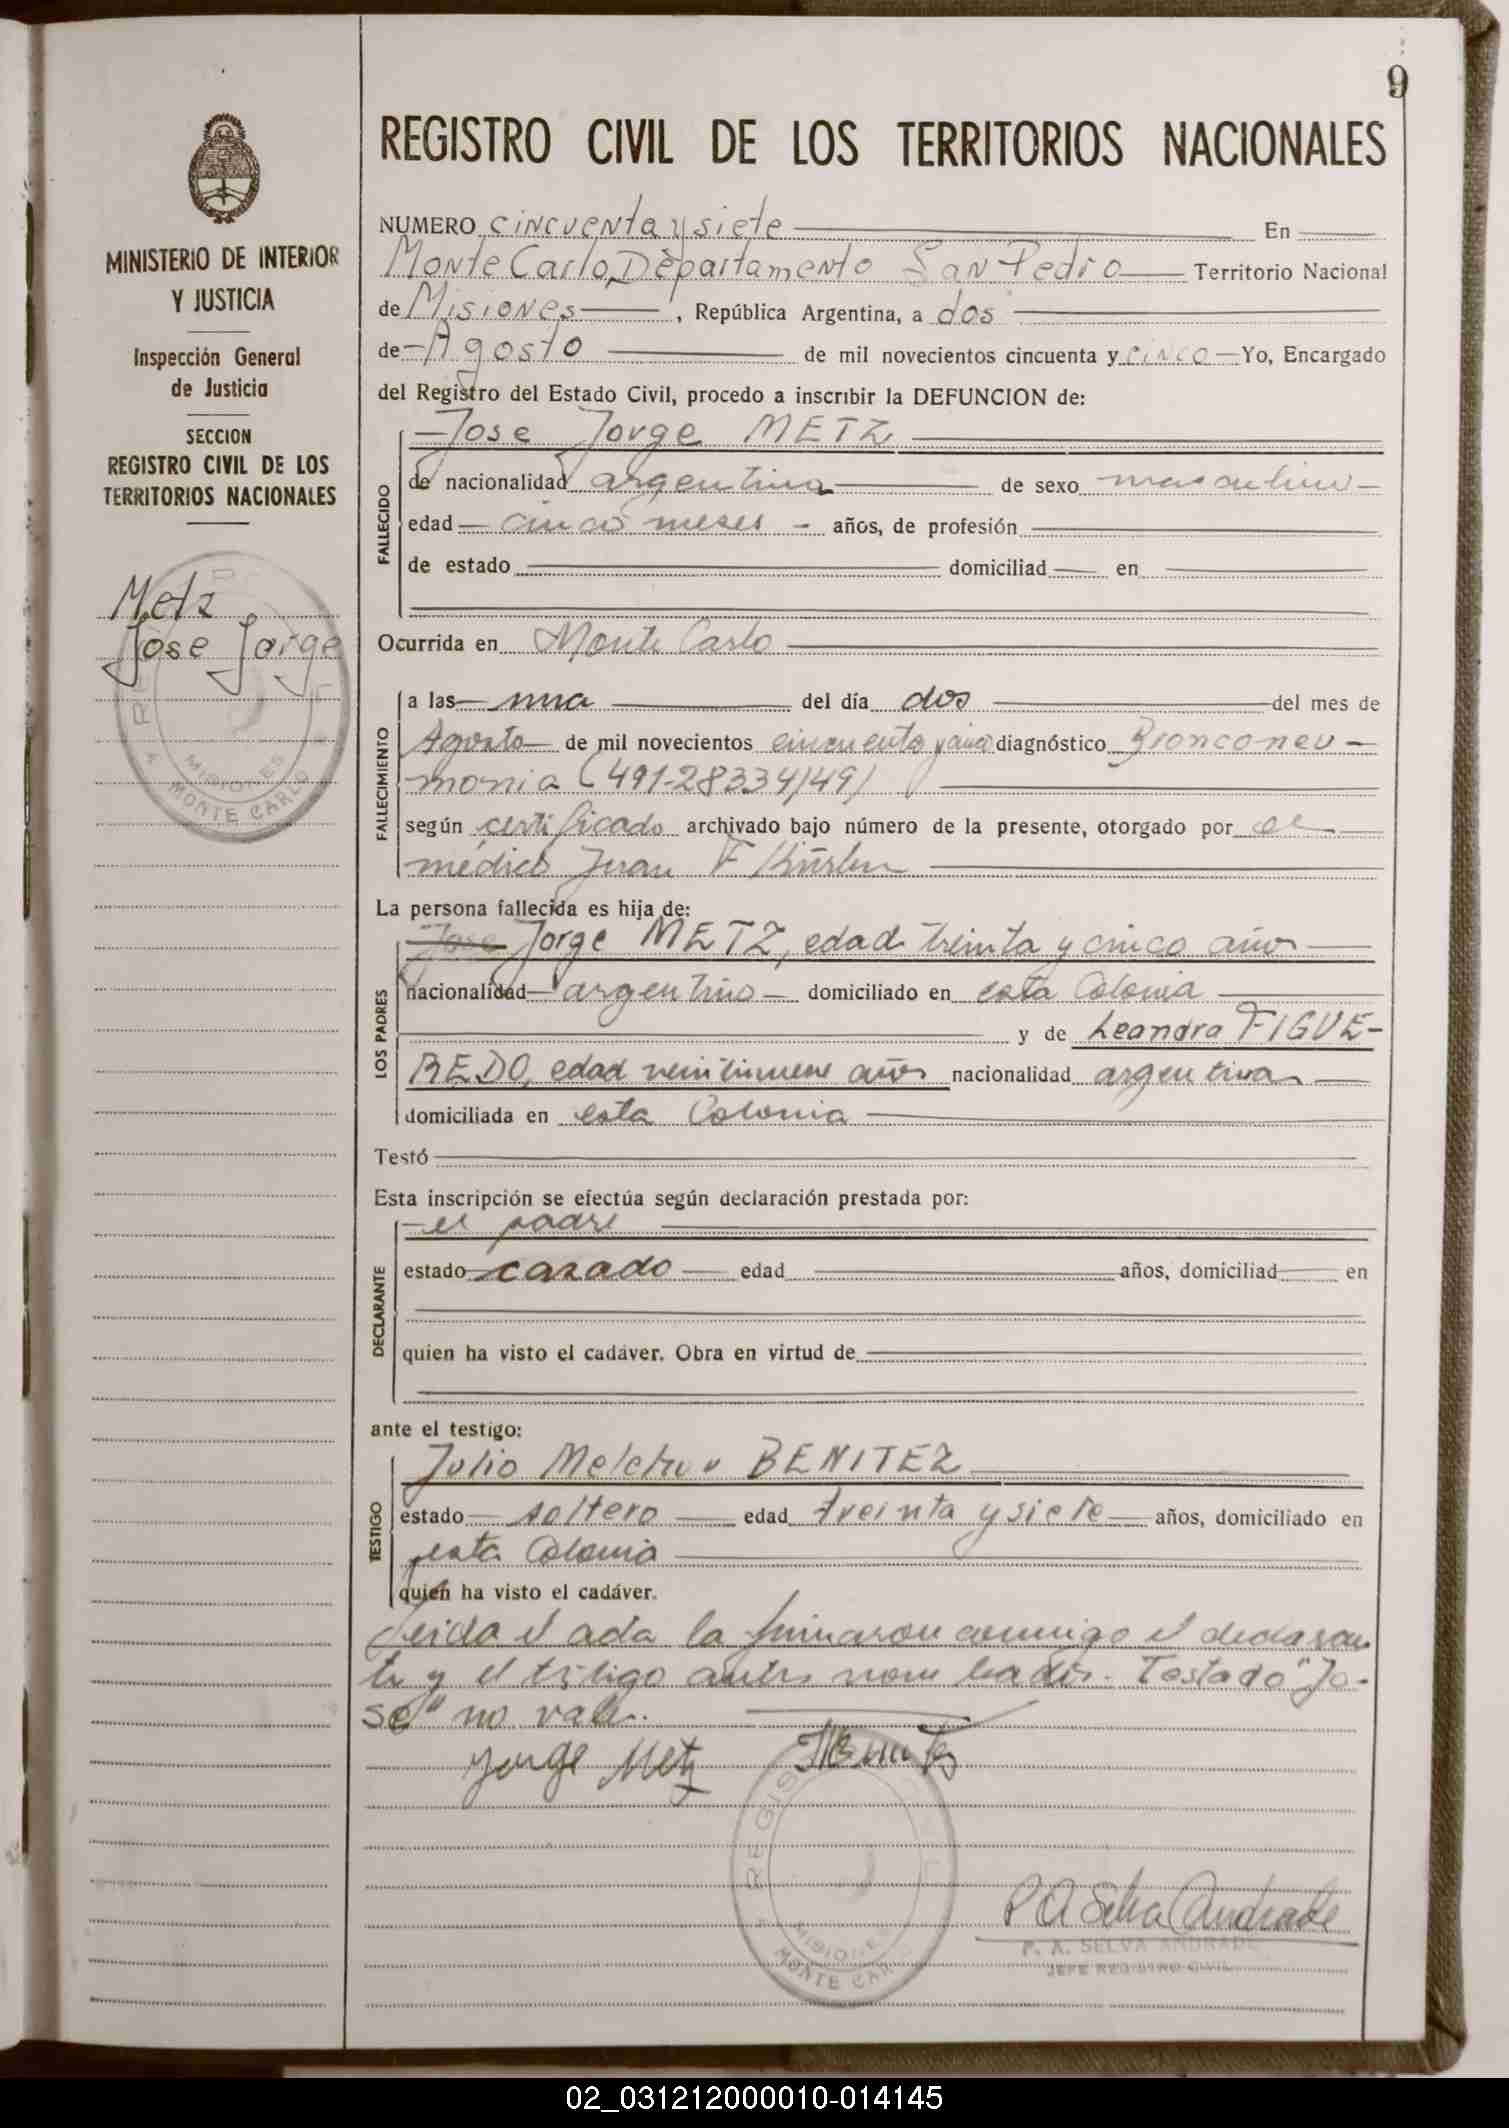 9
MINISTERIO DE INTERIOR
Y JUSTICIA
Inspección General
de Justicia
SECCION
REGISTRO CIVIL DE LOS
TERRITORIOS NACIONALES
Metz
Jose Jorge
MISIONES
MONTE CARLO
REGISTRO CIVIL DE LOS TERRITORIOS NACIONALES
NUMERO cincuenta y siete En
Monte Carlo, Departamento San Pedro Territorio Nacional
de Misiones, República Argentina, a dos
de Agosto de mil novecientos cincuenta y cinco Yo, Encargado
del Registro del Estado Civil, procedo a inscribir la DEFUNCION de:
FALLECIDO
Jose Jorge METZ
de nacionalidad argentina de sexo masculino
edad cinco meses años, de profesión
de estado domiciliad en
Ocurrida en Monte Carlo
FALLECIMIENTO
a las una del día dos del mes de
Agosto de mil novecientos cincuenta y cinco diagnóstico Bronconeu-
monia (491-28334/49)
según certificado archivado bajo número de la presente, otorgado por el
médico Juan F
La persona fallecida es hija de:
LOS PADRES
Jose Jorge METZ, edad treinta y cinco años
nacionalidad argentino domiciliado en esta Colonia
y de Leandra FIGUE-
REDO, edad veintinueve años nacionalidad argentina
domiciliada en esta Colonia
Testó
Esta inscripción se efectúa según declaración prestada por:
DECLARANTE
el padre
estado casado edad años, domiciliad en
quien ha visto el cadáver. Obra en virtud de
ante el testigo:
TESTIGO
Julio Melchor BENITEZ
estado soltero edad treinta y siete años, domiciliado en
esta Colonia
quien ha visto el cadáver.
Leida el acta la firmaron conmigo el declaran
te y el testigo antes nombrados. Testado "Jo-
se" no vale.
Jorge Metz
REGIS
MISIONES
MONTE CAR
P A Selva Andrade
P. A. SELVA ANDRADE
JEFE REGISTRO CIVIL
02_031212000010-014145